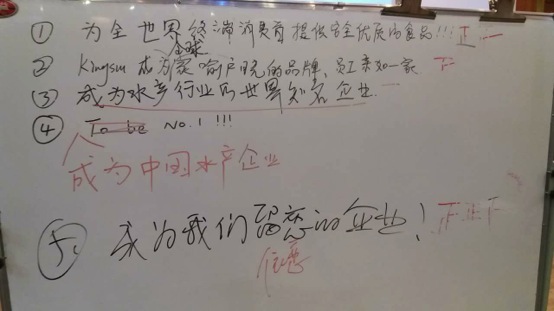 ① 为全世界终端消费者提供安全优质的食品!!! 正一
全球
② Kingsun 成为家喻户晓的品牌,员工亲如一家 下
③ 成为水产行业的世界知名企业
④ To be No.1!!!
成为中国水产企业
5. 成为我们留恋的企业! 正正下